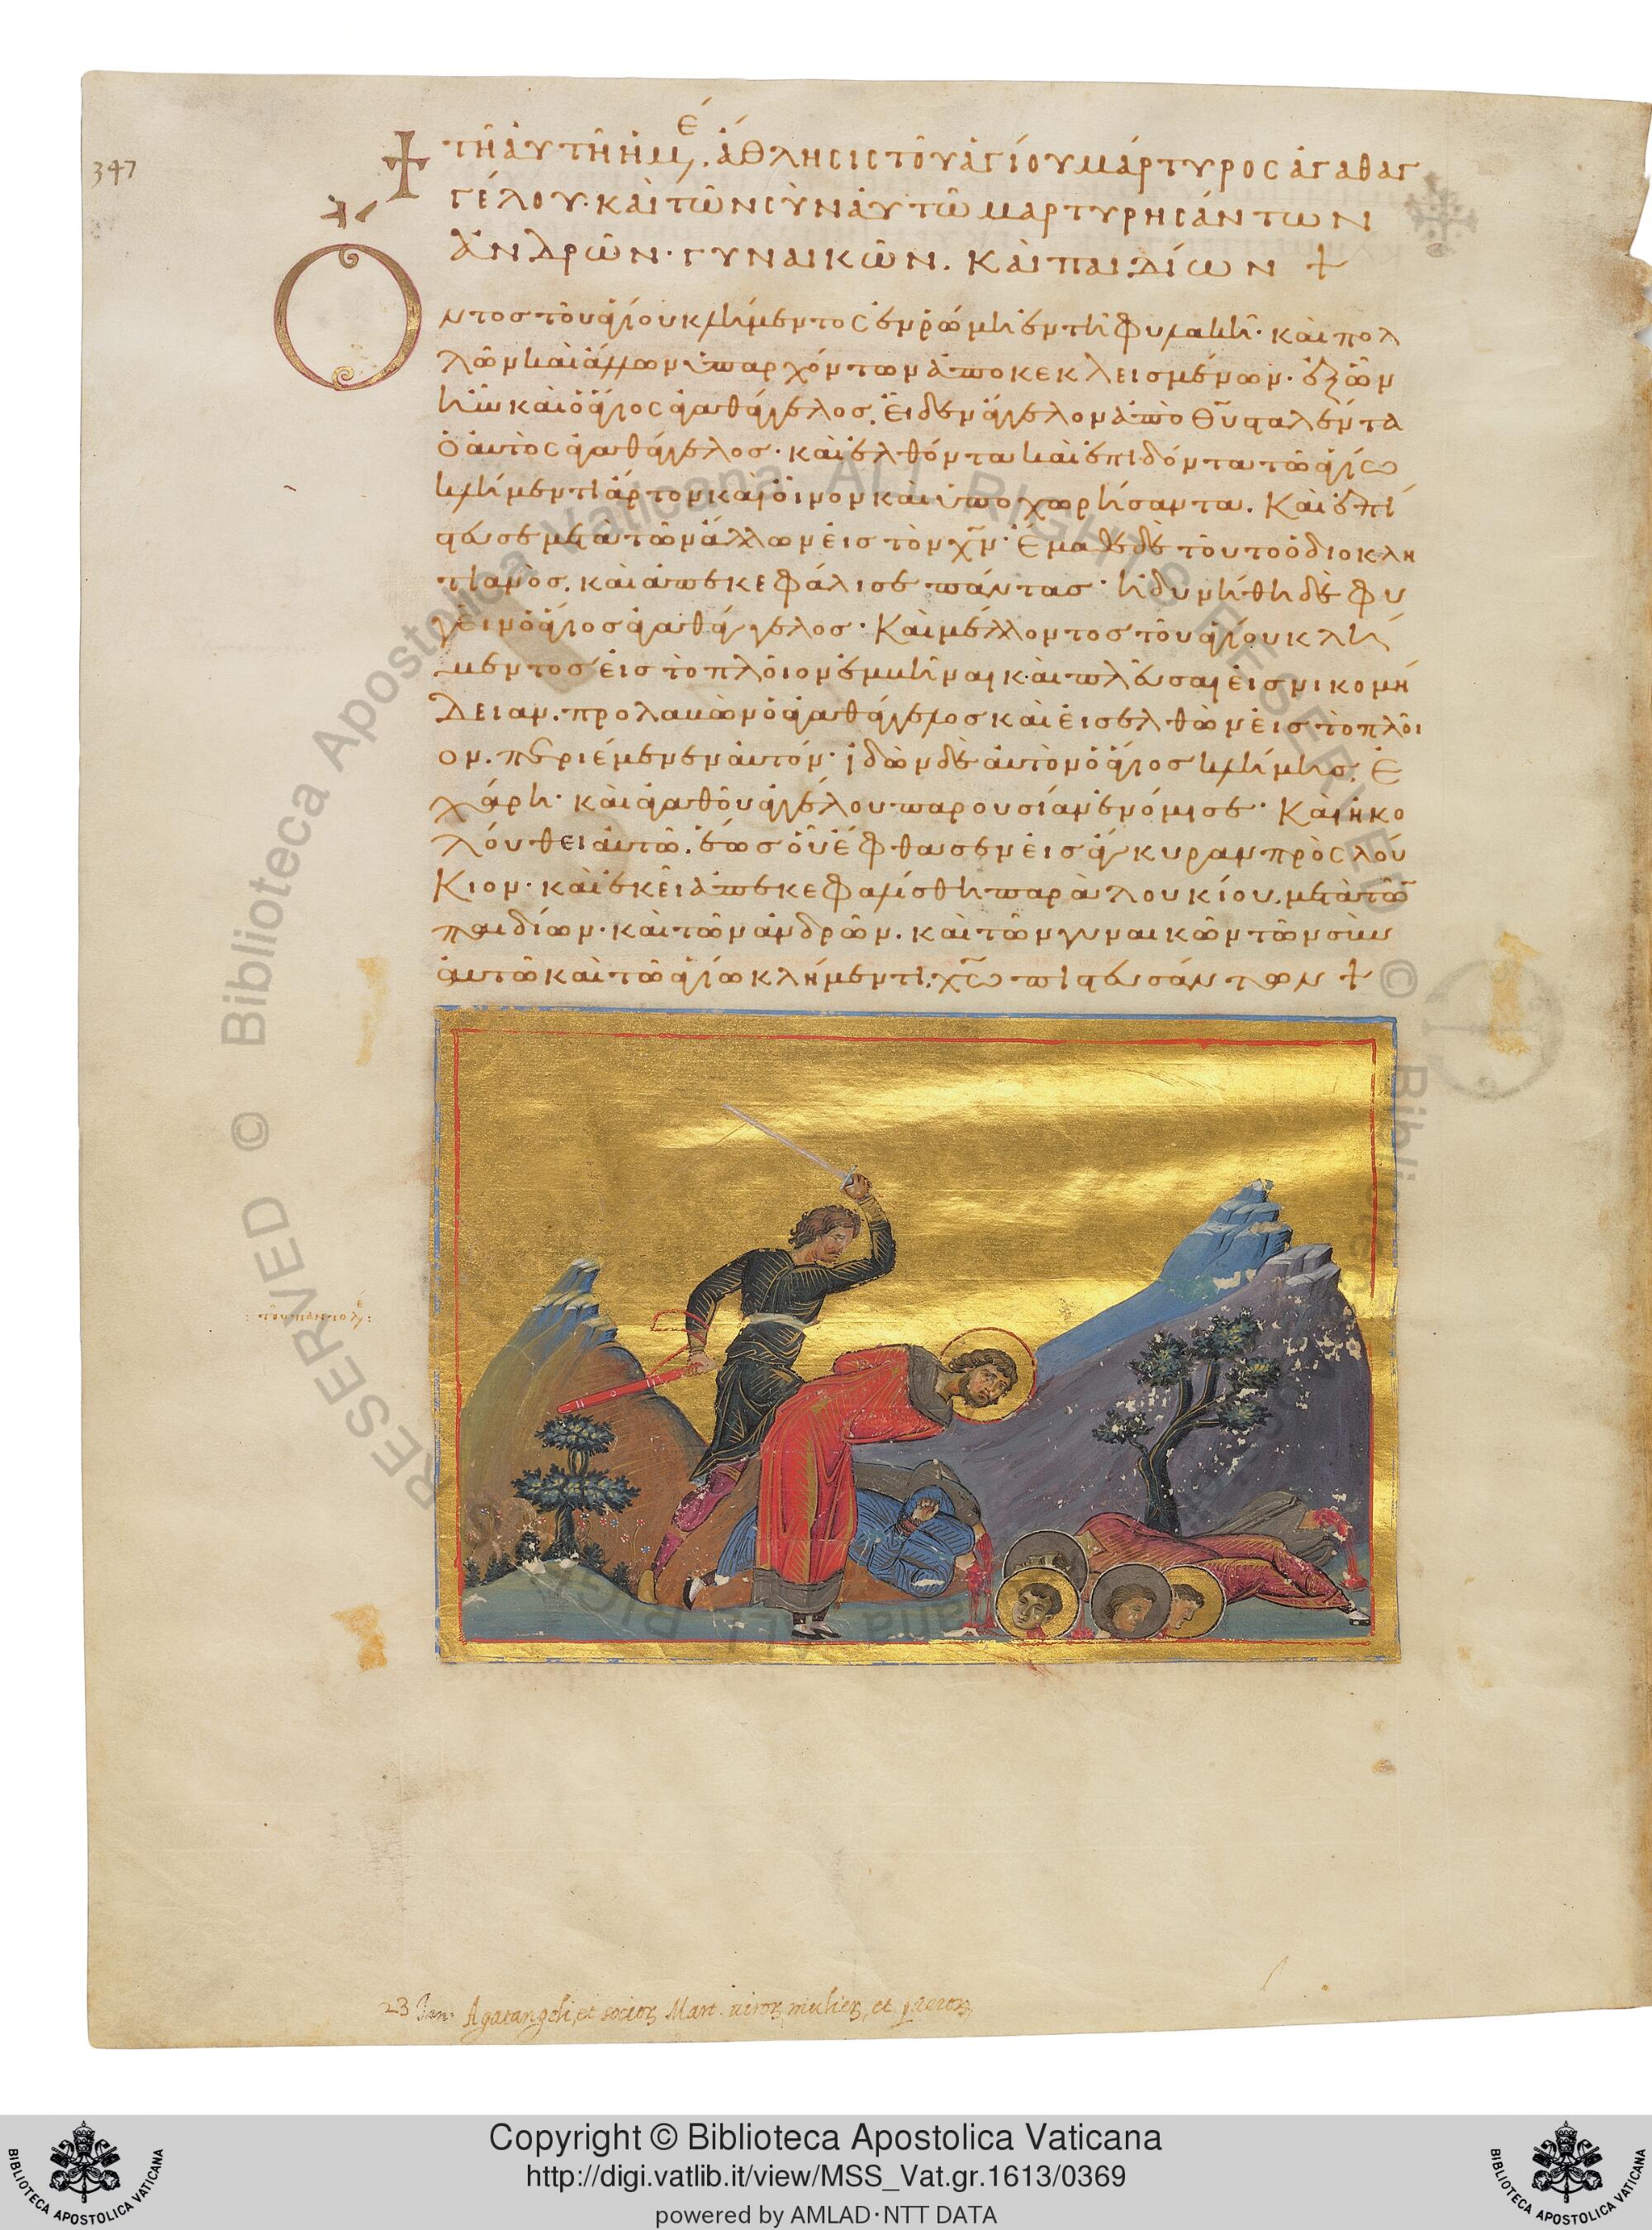 347
τῆ ἀυτῆ ἡμε. ἄθλησις τοῦ ἁγίου μάρτυρος ἀγαθαγ
γέλου· καὶ τῶν σὺν ἀυτῶ μαρτυρησάντων
ἀνδρῶν· γυναικῶν. καὶ παιδίων +
Οντος τοῦ ἁγίου κλήμεντος ἐν ῥώμη ἐν τῆ φυλακῆ· καὶ πολ
λῶν καὶ ἄλλων ὑπαρχόντων ἀποκεκλεισμένων· ἐξ ὧν
ἦν καὶ ὁ ἅγιος ἀγαθάγγελος. Εἶδεν ἄγγελον ἀπὸ θυ σταλέντα
ὁ ἀυτὸς ἀγαθάγγελος· καὶ ἐλθόντα καὶ ἐπιδόντα τῶ ἁγίω
κλήμεντι ἄρτον καὶ οἶνον καὶ ὑποχωρήσαντα. Καὶ ἐπί
στευσε μετὰ τῶν ἄλλων εἰς τὸν χν· Ἔμαθε δὲ τοῦτο ὁ διοκλη
τιανὸς. καὶ ἀπεκεφάλισε πάντας· ἠδυνήθη δὲ φυ
γεῖν ὁ ἅγιος ἀγαθάγγελος· Καὶ μέλλοντος τοῦ ἁγίου κλή
μεντος εἰς τὸ πλοῖον ἐμβῆναι καὶ πλεῦσαι εἰς νικομή
δειαν. προλαβὼν ὁ ἀγαθάγγελος καὶ εἰσελθὼν εἰς τὸ πλοῖ
ον. περιέμενεν ἀυτόν· ἰδὼν δὲ ἀυτὸν ὁ ἅγιος κλήμης. Ἐ
χάρη· καὶ ἀγαθοῦ ἀγγέλου παρουσίαν ἐνόμισε· Καὶ ἠκο
λούθει ἀυτῶ. ἕως οὗ ἔφθασεν εἰς ἄγκυραν πρὸς λού
κιον· καὶ ἐκεῖ ἀπεκεφαλίσθη παρὰ λουκίου. μετὰ τῶ
παιδίων· καὶ τῶν ἀνδρῶν. καὶ τῶν γυναικῶν τῶν σὺν
ἀυτῶ καὶ τῶ ἁγίω κλήμεντι. χω πιστευσάντων +
23 Jan. Agatangeli, et socior. Mart. viror. mulier. et pueror.
Copyright © Biblioteca Apostolica Vaticana
http://digi.vatlib.it/view/MSS_Vat.gr.1613/0369
powered by AMLAD·NTT DATA
BIBLIOTECA APOSTOLICA VATICANA
BIBLIOTECA APOSTOLICA VATICANA
© Biblioteca Apostolica Vaticana ALL RIGHTS RESERVED